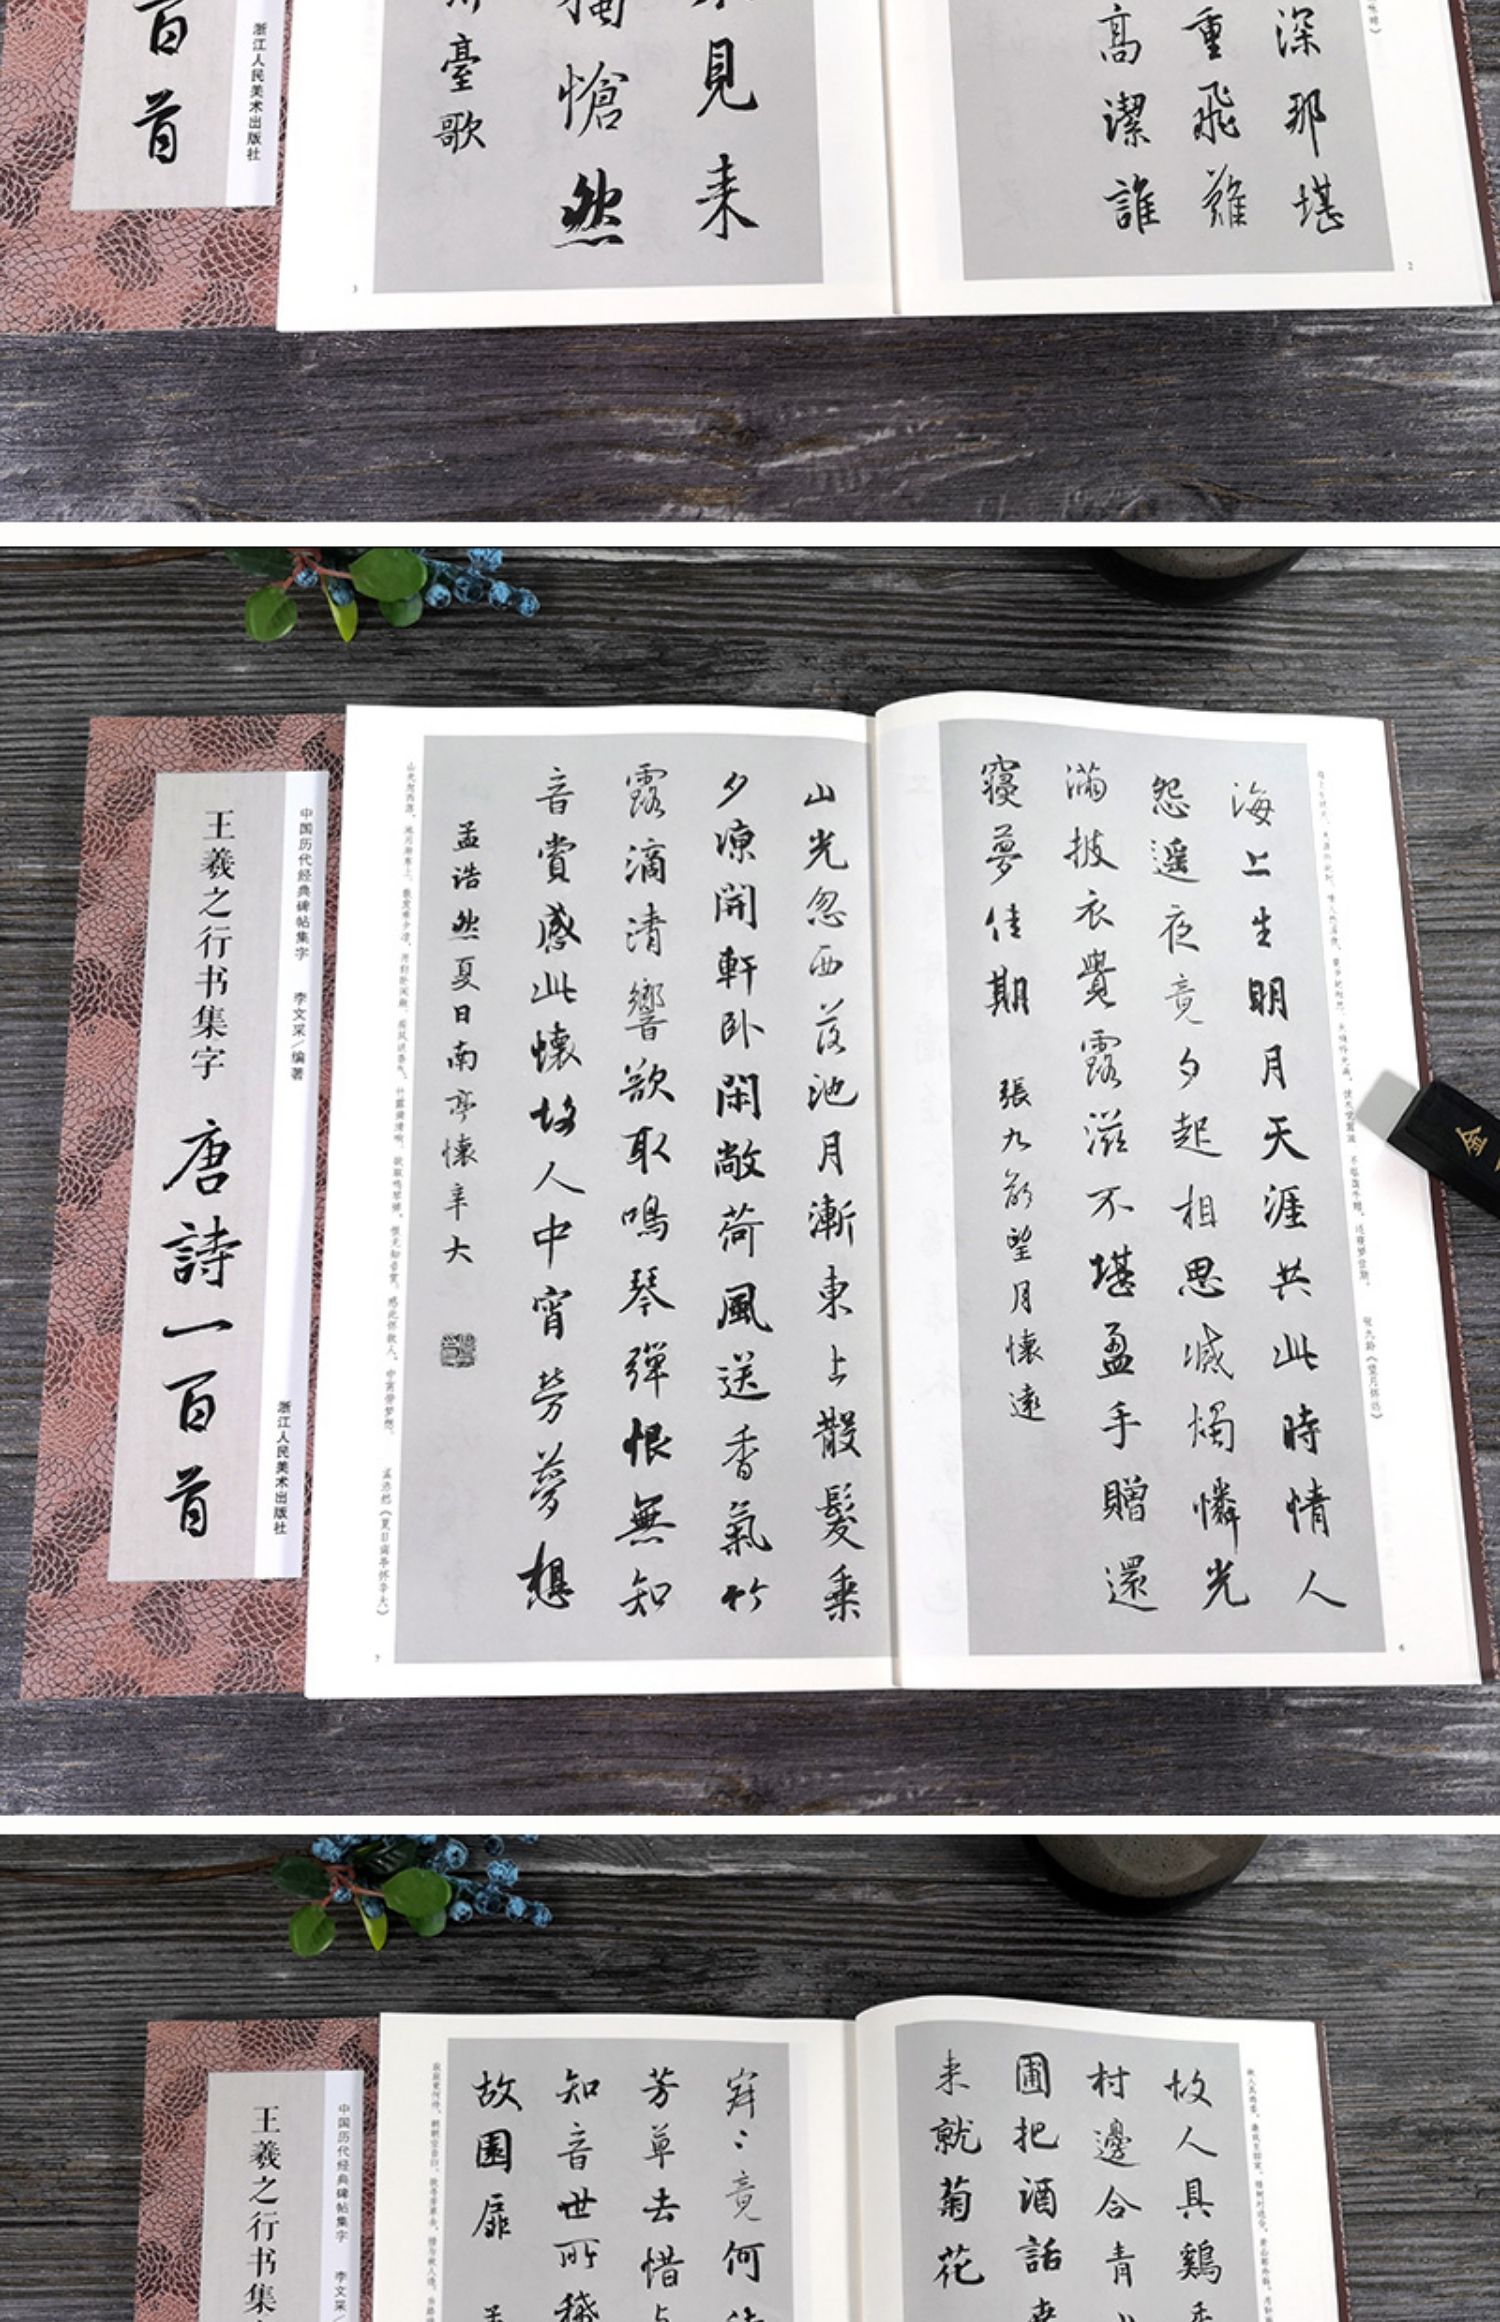 深那堪
重飛難
高潔誰
見来
愴然
臺歌
百首
浙江人民美术出版社
海上生明月天涯共此時情人
怨遥夜竟夕起相思滅燭憐光
滿披衣覺露滋不堪盈手贈還
寢夢佳期 張九齡望月懷遠
山光忽西落池月漸東上散髮乗
夕凉開軒卧閑敞荷風送香氣竹
露滴清響欲取鳴琴彈恨無知
音賞感此懷故人中宵勞夢想
孟浩然夏日南亭懷辛大
中国历代经典碑帖集字 李文采/编著
浙江人民美术出版社
王羲之行书集字 唐詩一百首
故人具鷄
村邊合青
圃把酒話
来就菊花
寂〻竟何
芳草去惜
知音世所稀
故園扉
中国历代经典碑帖集字 李文采/
王羲之行书集